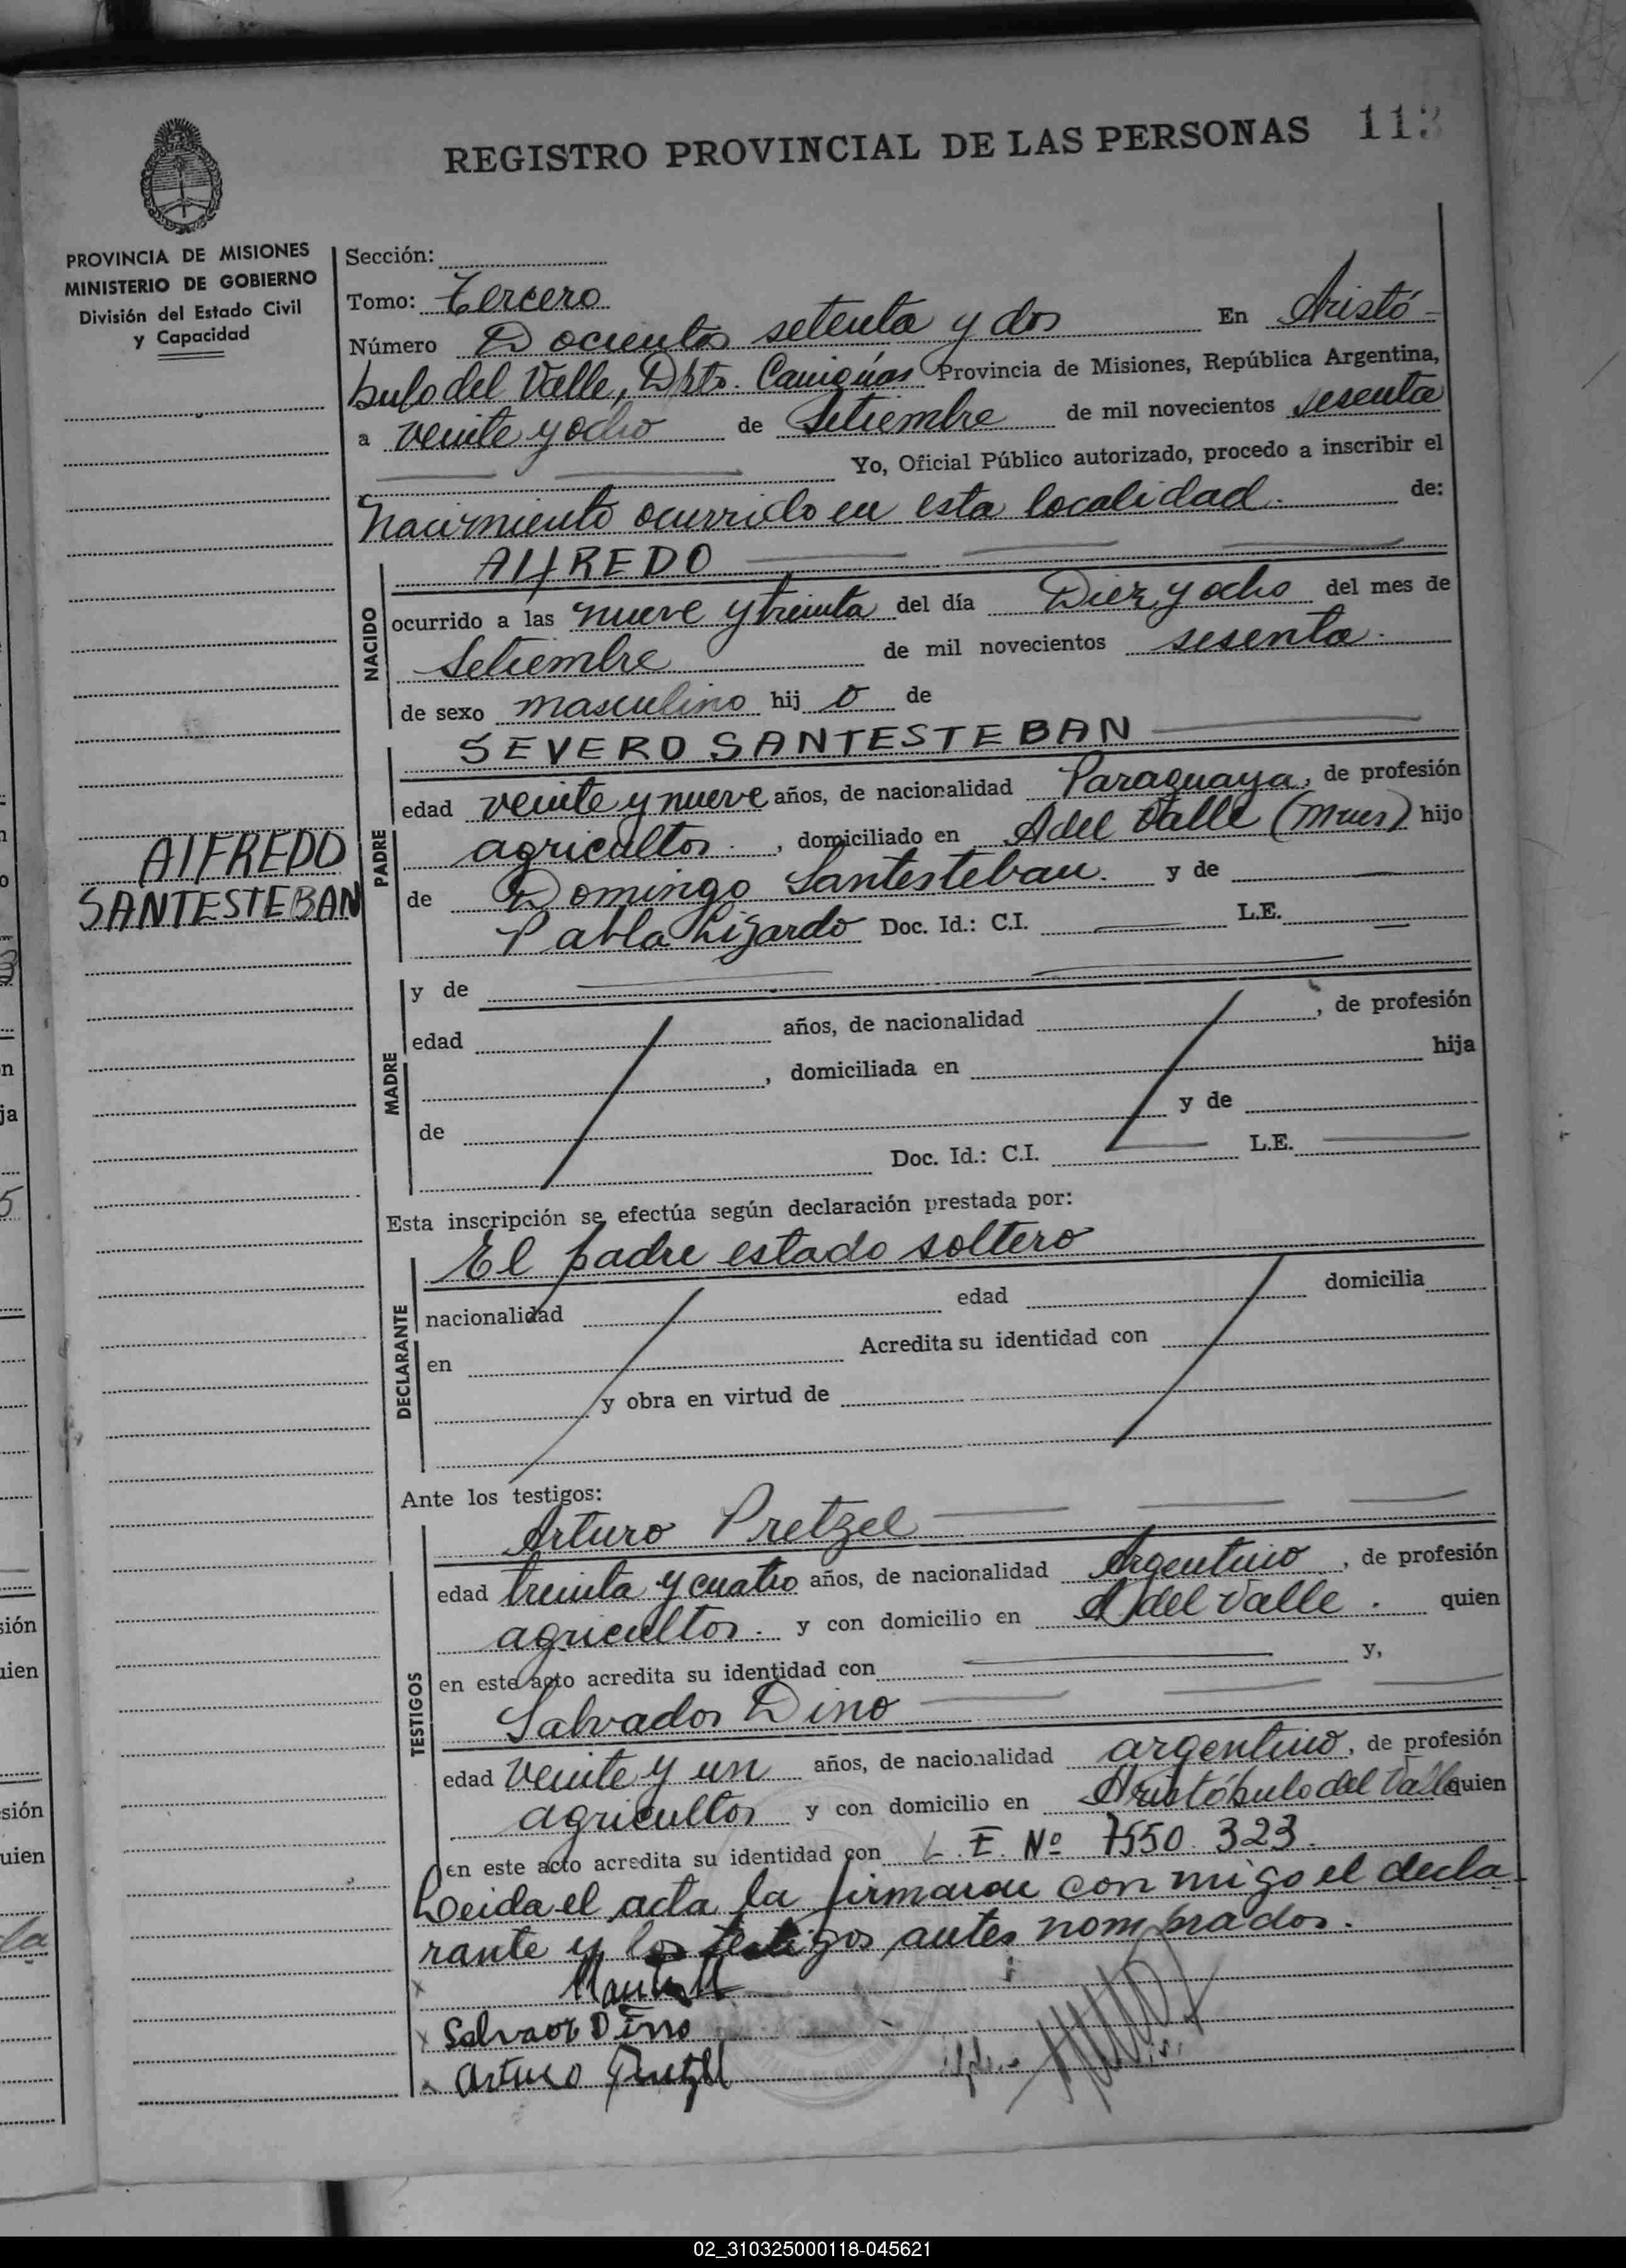 REGISTRO PROVINCIAL DE LAS PERSONAS 113
PROVINCIA DE MISIONES
MINISTERIO DE GOBIERNO
División del Estado Civil
y Capacidad
Sección:
Tomo: Tercero
Número Docientos setenta y dos En Aristó-
bulo del Valle, Dpto. Cainguás Provincia de Misiones, República Argentina,
a veinte y ocho de Setiembre de mil novecientos sesenta
Yo, Oficial Público autorizado, procedo a inscribir el
Nacimiento ocurrido en esta localidad. de:
NACIDO
ALFREDO
ocurrido a las nueve y treinta del día Diez y ocho del mes de
Setiembre de mil novecientos sesenta.
de sexo masculino hij o de
PADRE
SEVERO SANTESTEBAN
edad veinte y nueve años, de nacionalidad Paraguaya, de profesión
agricultor. , domiciliado en A del Valle (Mnes) hijo
de Domingo Santesteban. y de
Pabla Lizardo Doc. Id.: C.I. L.E.
ALFREDO
SANTESTEBAN
MADRE
y de
edad años, de nacionalidad , de profesión
, domiciliada en hija
de y de
Doc. Id.: C.I. L.E.
Esta inscripción se efectúa según declaración prestada por:
DECLARANTE
El padre estado soltero
nacionalidad edad domicilia
en Acredita su identidad con
y obra en virtud de
Ante los testigos:
TESTIGOS
Arturo Pretzel
edad treinta y cuatro años, de nacionalidad Argentino , de profesión
agricultor. y con domicilio en A del Valle. quien
en este acto acredita su identidad con y,
Salvador Dino
edad veinte y un años, de nacionalidad argentino, de profesión
agricultor y con domicilio en Aristóbulo del Valle quien
en este acto acredita su identidad con L.E. Nº 7550.323.
Leida el acta la firmaron con migo el decla-
rante y los testigos antes nombrados.
Salvador Dino
Arturo Pretzel
02_310325000118-045621